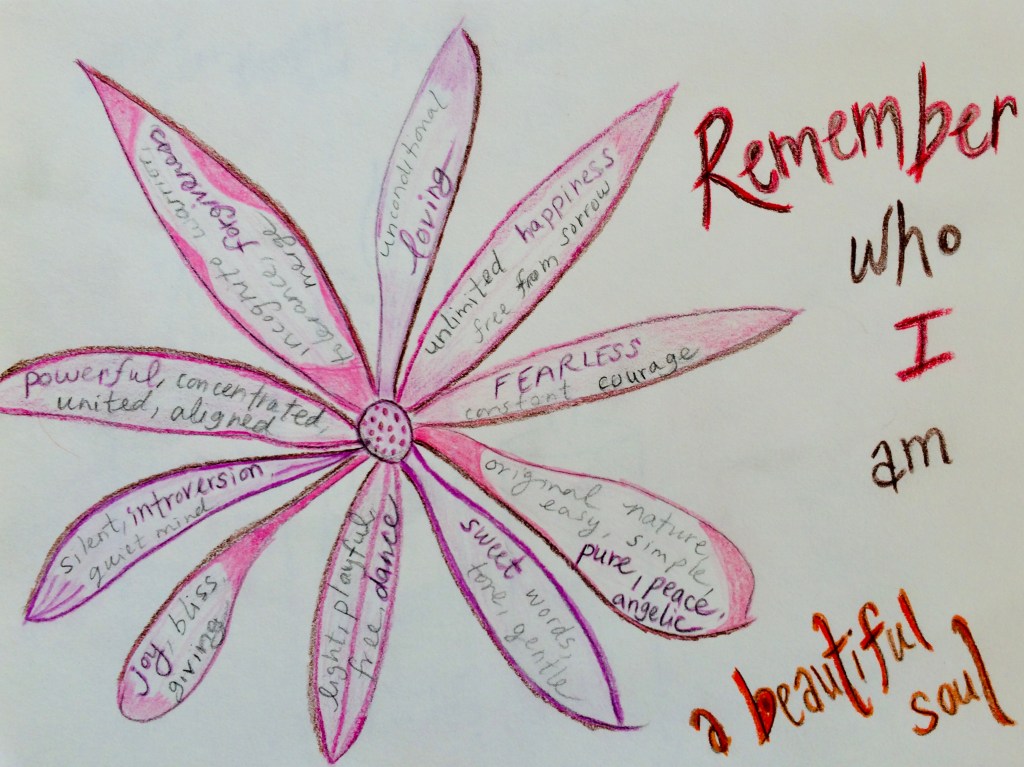 Remember
who
I
am
a beautiful
soul
unconditional
loving
unlimited happiness
free from sorrow
FEARLESS
constant courage
original nature,
easy, simple,
pure, peace,
angelic
sweet words,
tone, gentle
light, playful,
free, dance
joy, bliss,
giving
silent, introversion
quiet mind
powerful, concentrated,
united, aligned
incognito warrior,
tolerance, forgiveness
merge